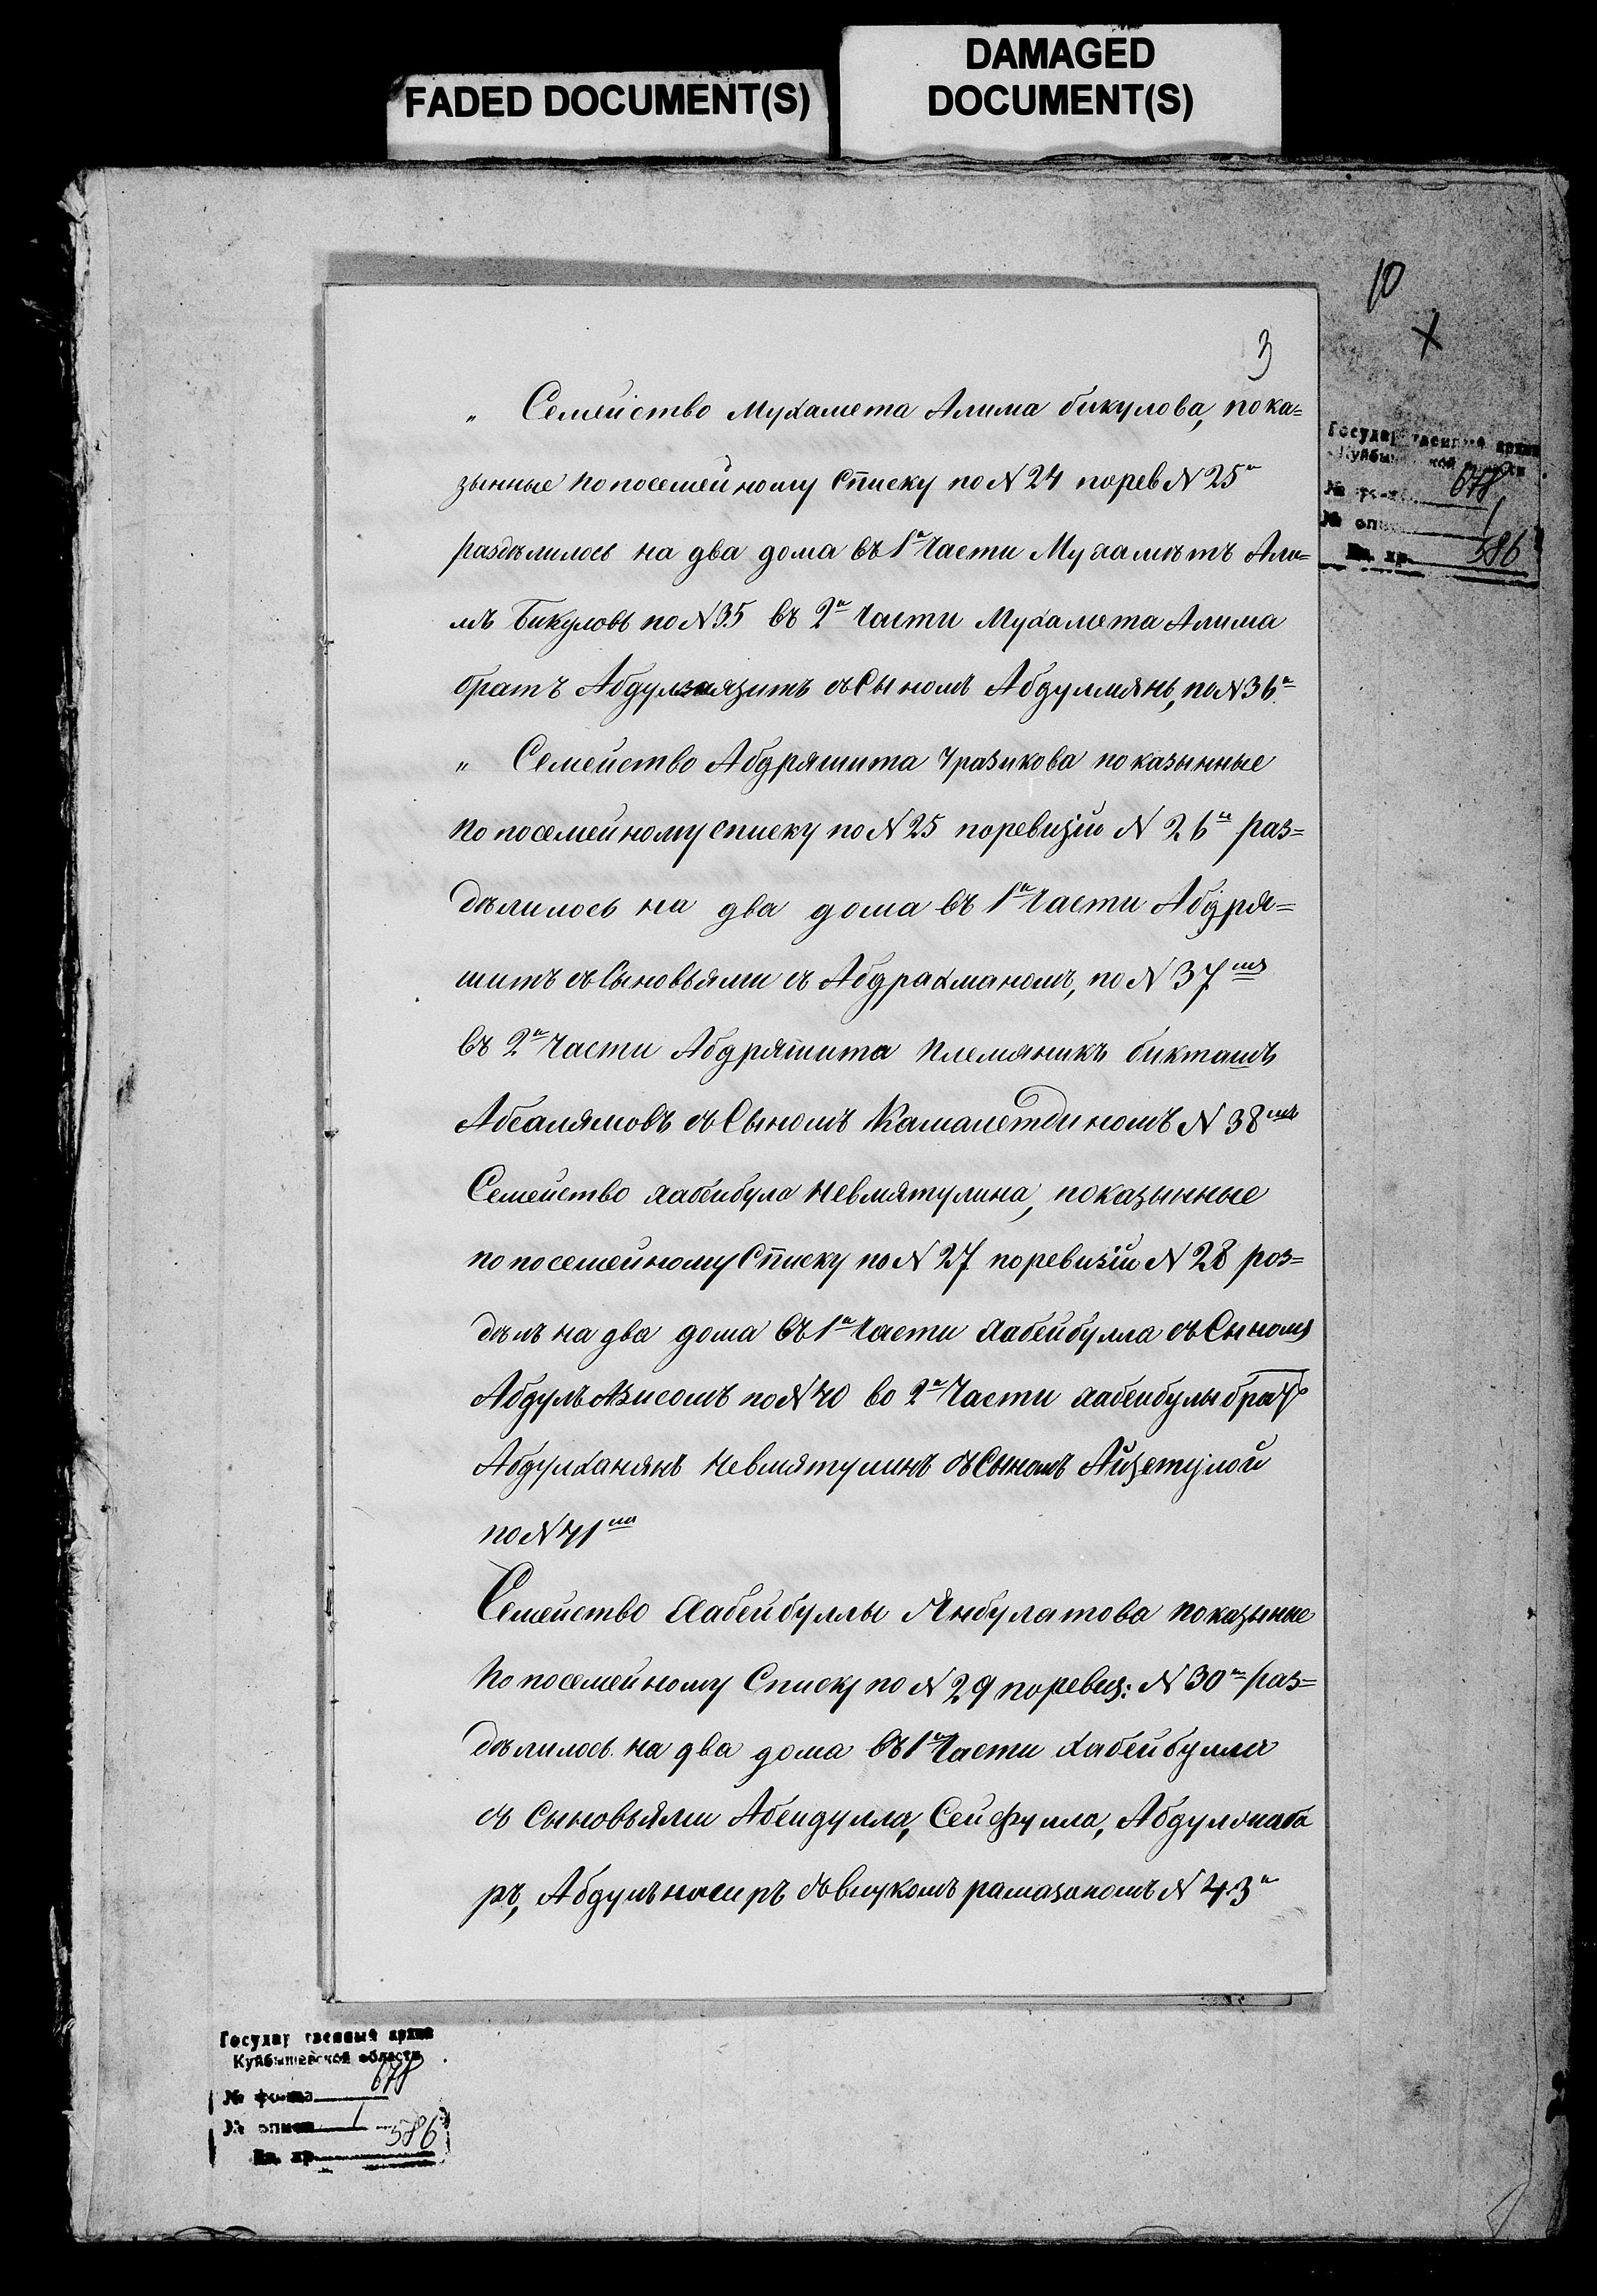 FADED DOCUMENT(S)
DAMAGED
DOCUMENT(S)
10
X
3
Государственный архив
Куйбышевской области
№ фонда 678
№ описи 1
Ед. хр. 586
„ Семейство Мухамета Алима бикулова, пока=
зынные по посемейному списку по N 24 по рев N 25й
раздѣлилось на два дома въ 1й Части Мухаметъ Али=
мъ Бикуловъ по N 35 въ 2й Части Мухамета Алима
братъ съ Сыномъ Абдулмянъ, по N 36й
„ Семейство Абдряшита Уразикова показынные
по посемейному списку по N 25 по ревизіи N 26й раз=
дѣлилось на два дома въ 1й Части Абдря=
шитъ съ Сыновьями съ Абдрахманомъ, по N 37мъ
въ 2й Части Абдряшита племяникъ бикташъ
Абсалямовъ съ Сыномъ Камалетдиномъ N 38мъ
Семейство хабейбула Невмятулина, показынные
по посемейному Списку по N 27 по ревизіи N 28 роз=
дѣлъ на два дома въ 1й Части хабейбулла съ Сыномъ
Абдулъ Азисомъ по N 40 во 2й Части хабейбулы братъ
Абдулханянъ Невмятулинъ съ Сыномъ Айзетулой
по N 41мъ
Семейство Хабейбуллы Янбулатова показыные
по посемейному Списку по N 29 по ревиз: N 30й раз=
дѣлилось на два дома въ 1й Части хабейбулла
съ Сыновьями Абейдулла, Сейфулла, Абдулжаба
ръ, Абдулъ насиръ съ внукомъ рамазаномъ N 43й
Государственный архив
Куйбышевской области
№ фонда 678
№ описи 1
Ед. хр. 586